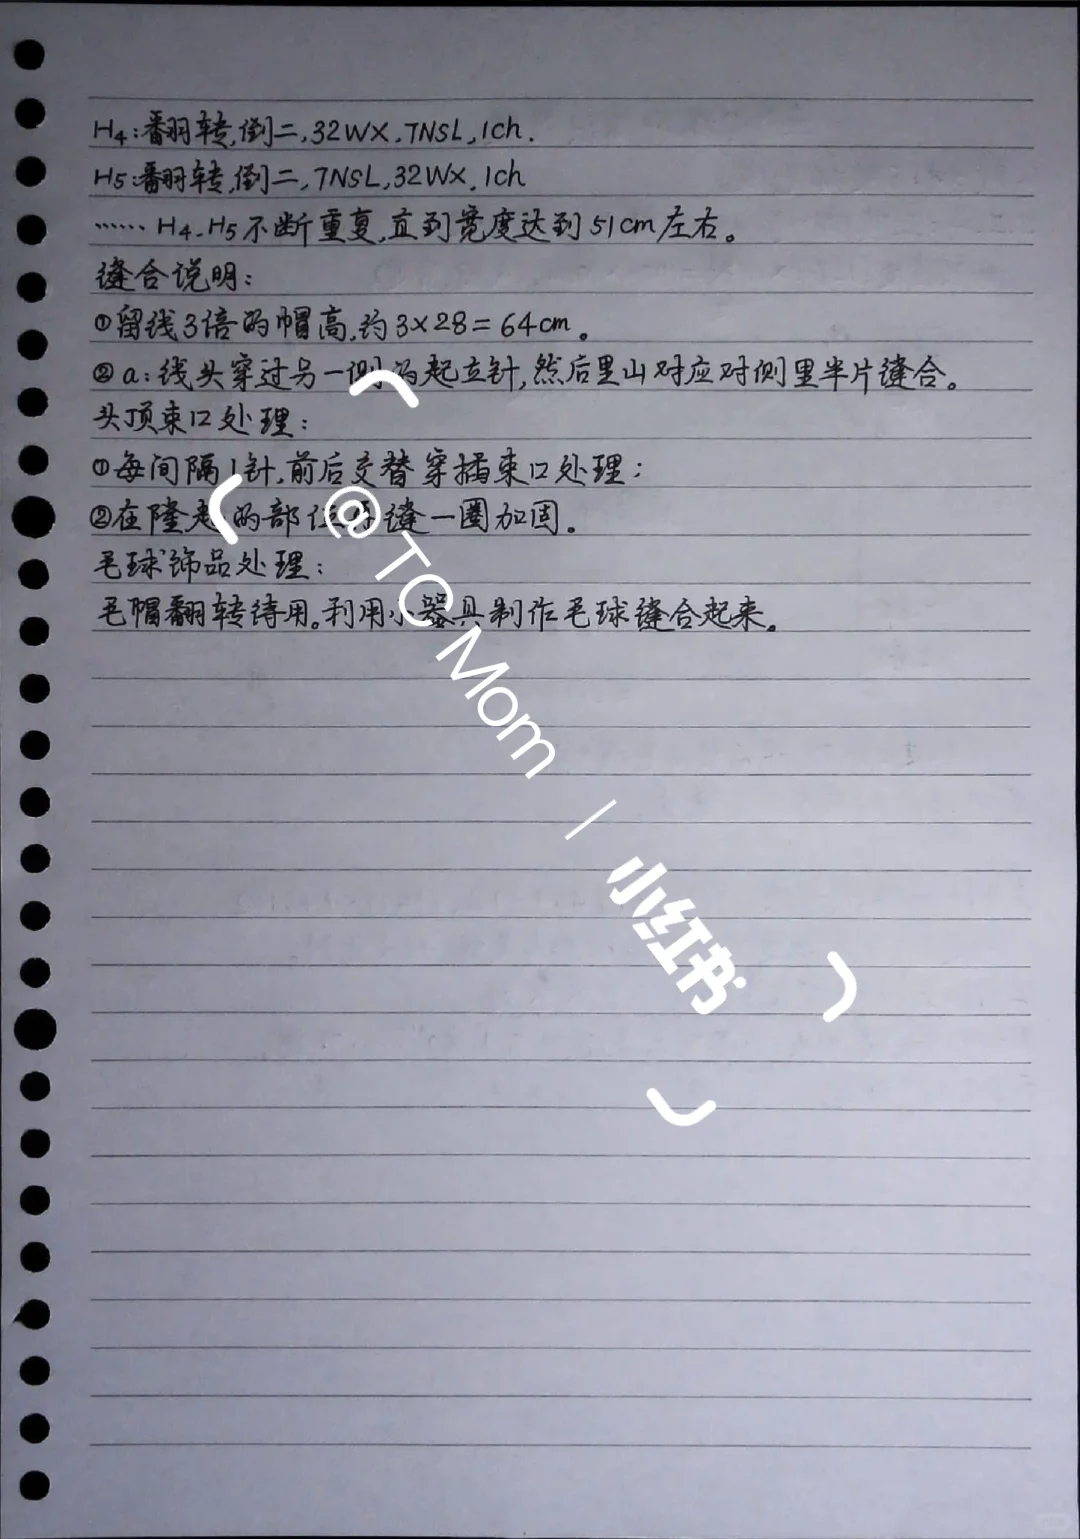 H4:翻转,倒二,32WX,7NSL,1ch.
H5:翻转,倒二,7NSL,32WX,1ch
…… H4-H5不断重复,直到宽度达到51cm左右。
缝合说明:
①留线3倍的帽高,约3×28=64cm。
②a:线头穿过另一侧的起立针,然后里山对应对侧里半片缝合。
头顶束口处理:
①每间隔1针,前后交替穿插束口处理;
②在隆起的部位 缝一圈加固。
毛球饰品处理:
毛帽翻转待用。利用小器具制作毛球缝合起来。
@TC Mom | 小红书